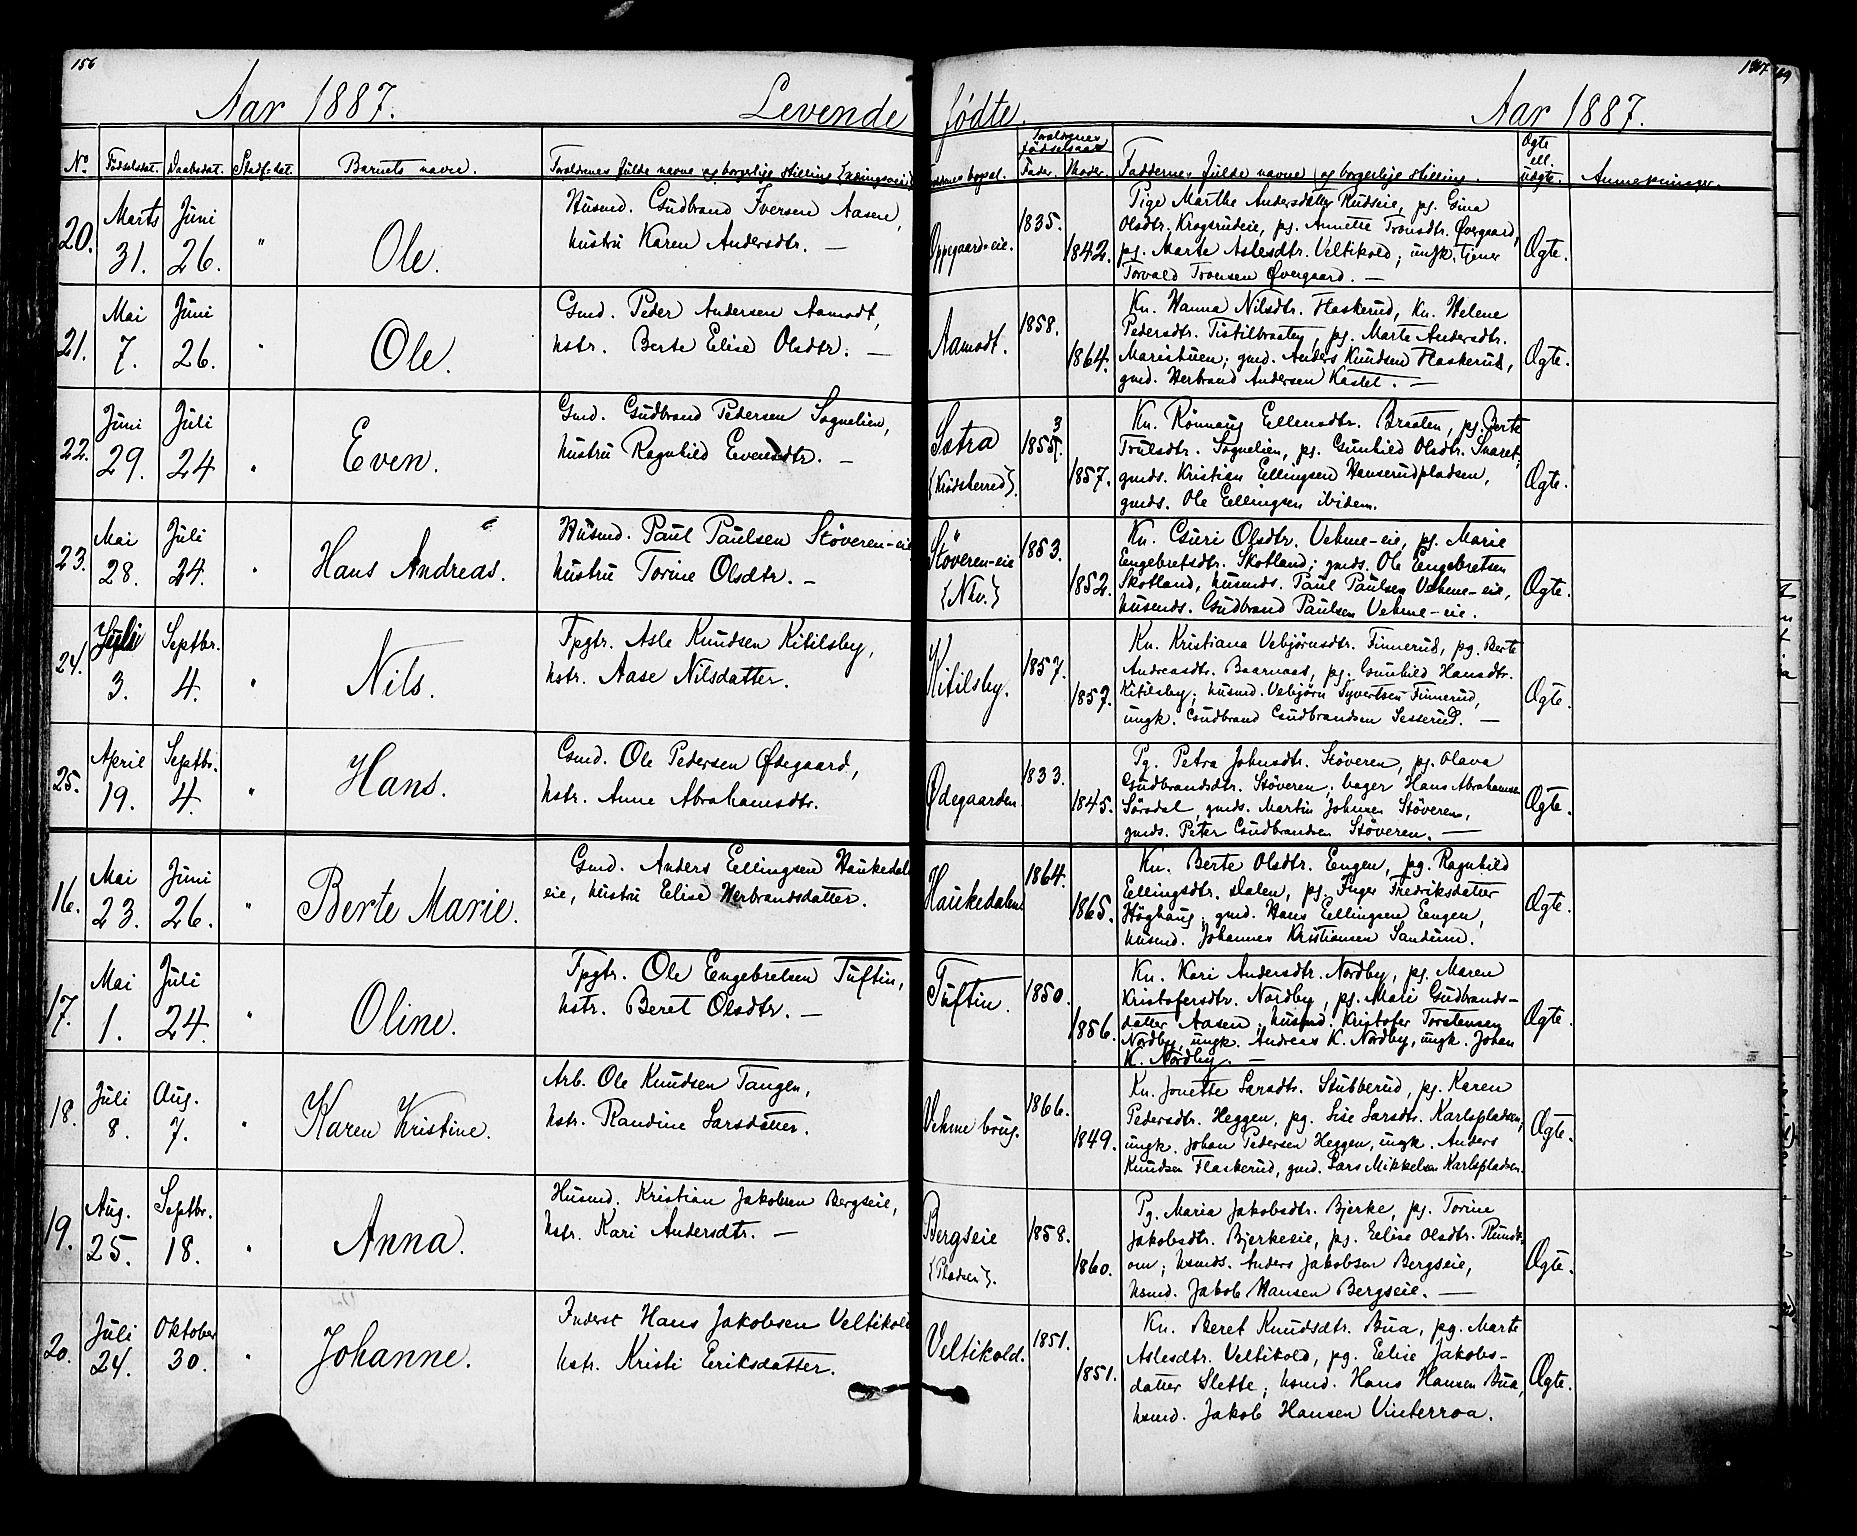 156
Aar 1887.
Levende
No. Fødselsdat. Daabsdat. Stadf.dat. Barnets navn. Forældrenes fulde navne og borgerlige stilling
20. Marts 31. Juni 26. " Ole. Husmd. Gudbrand Iversen Aasen,
hustru Karen Andersdtr. —
21. Mai 7. Juni 26. " Ole. Gmd. Peder Andersen Aamodt,
hstr. Berte Elise Olsdtr. —
22. Juni 29. Juli 24 " Even. Gmd. Gudbrand Pedersen Sognelien,
hustru Ragnhild Evensdtr. —
23. Mai 28. Juli 24. " Hans Andreas. Husmd. Paul Paulsen Støveren-eie
hustru Torine Olsdtr. —
24. Juli 3. Septbr. 4. " Nils. Fpgtr. Asle Knudsen Kitilsby,
hstr. Aase Nilsdatter.
25. April 19. Septbr. 4. " Hans. Gmd. Ole Pedersen Ødegaard,
hstr. Anne Abrahamsdtr.
16. Mai 23. Juni 26. " Berte Marie. Gmd. Anders Ellingsen Haukedal
eie, hustru Elise Herbrandsdatter.
17. Mai 1. Juli 24. " Oline. Fpgtr. Ole Engebretsen Tuftin,
hstr. Beret Olsdtr. —
18. Juli 8. Aug. 7. " Karen Kristine. Arb. Ole Knudsen Tangen,
hstr. Randine Larsdatter.
19. Aug. 25. Septbr. 18. " Anna. Husmd. Kristian Jakobsen Bergseie,
hstr. Kari Andersdtr. —
20. Juli 24. Oktober 30. " Johanne. Inderst Hans Jakobsen Veltikold
hstr. Kristi Eriksdatter.
fødte.
Aar 1887.
Forældrenes fødselsaar
bopæl. Fader. Moder. Faddernes fulde navne og borgerlige stilling. Ægte ell. uægte. Anmerkninger.
Oppegaards-eie. 1835. 1842. Pige Marthe Andersdatter Rudseie, pg. Gina
Olsdtr. Krogsrudeie, pg. Annette Tronsdtr. Øvergaard,
pg. Marte Aslesdtr. Veltikold; ungk. tjener
Torvald Tronsen Øvergaard. — Ægte.
Aamodt. 1858. 1864. Kn. Hanna Nilsdtr. Flaskerud, Kn. Helene
Pedersdtr. Tistilbraaten, pg. Marte Andersdtr.
Maristuen; gmd. Anders Knudsen Flaskerud,
gmd. Herbrand Andersen Kastet. — Ægte.
Sætra {Krødsherred}. 1855. 3 1857. Kn. Rønnaug Ellensdtr. Braaten, pg. Berte
Trulsdtr. Sognelien, pg. Gunhild Olsdtr. Snaret,
gmds. Kristian Ellingsen Hanserudpladsen,
gmds. Ole Ellingsen ibidem. Ægte.
Støveren-eie {Nkv.} 1853. 1852. Kn. Guri Olsdtr. Vehme-eie, pg. Marie
Engebretsdtr. Skotland; gmds. Ole Engebretsen
Skotland, husmds. Paul Paulsen Vehme-eie,
husmds. Gudbrand Paulsen Vehme-eie. Ægte.
Kitilsby. 1857. 1857. Kn. Kristiana Vebjørnsdtr. Finnerud, pg. Berte
Andreasdtr. Baarnaas, pg. Gunhild Hansdtr.
Kitilsby; husmd. Vebjørn Syvertsen Finnerud,
ungk. Gudbrand Gudbrandsen Sesserud. — Ægte.
Ødegaarden. 1833. 1845. Pg. Petra Johnsdtr. Støveren, pg. Olava
Gudbrandsdtr. Støveren, bager Hans Abrahamsen
Sørsdal, gmds. Martin Johnsen Støveren,
gmds. Peter Gudbrandsen Støveren. — Ægte.
Haukedalen 1864. 1865. Kn. Berte Olsdtr. Engen, pg. Ragnhild
Ellingsdtr. Dalen, pg. Inger Fredriksdatter
Høghaug; gmd. Hans Ellingsen Engen,
husmd. Johannes Kristiansen Sandum. Ægte.
Tuftin. 1850. 1856. Kn. Kari Andersdtr. Nordby, pg. Maren
Kristofersdtr. Nordby, pg. Mari Gudbrands-
datter Aasen; husmd. Kristofer Torstensen
Nordby, ungk. Andreas K. Nordby, ungk. Johan
K. Nordby. — Ægte.
Vehme brug. 1866. 1849. Kn. Jonette Larsdtr. Stubberud, pg. Karen
Pedersdtr. Heggen, pg. Lise Larsdtr. Karlspladsen,
ungk. Johan Pedersen Heggen, ungk. Anders
Knudsen Flaskerud, gmd. Lars Mikkelsen Karlspladsen. Ægte.
Bergseie {Pladsen}. 1858. 1860. Pg. Maria Jakobsdtr. Bjerke, pg. Torine
Jakobsdtr. Bjerkeseie, pg. Elise Olsdtr. Rund-
om; husmds. Anders Jakobsen Bergseie,
husmd. Jakob Hansen Bergseie. — Ægte.
Veltikold. 1851. 1851. Kn. Beret Knudsdtr. Bua, pg. Marte
Aslesdtr. Veltikold, pg. Elise Jakobs-
datter Slette; husmd. Hans Hansen Bua,
husmd. Jakob Hansen Vinterroa. Ægte.